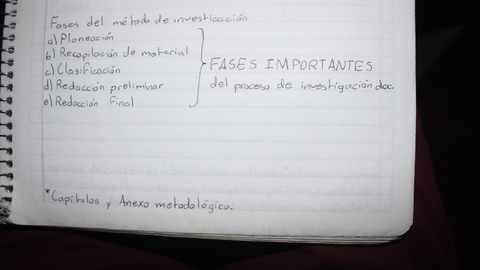 Fases del método de investigación
a) Planeación
b) Recopilación de material
c) Clasificación
d) Redacción preliminar
e) Redacción Final
FASES IMPORTANTES
del proceso de investigación doc.
*Capítulos y Anexo metodológico.